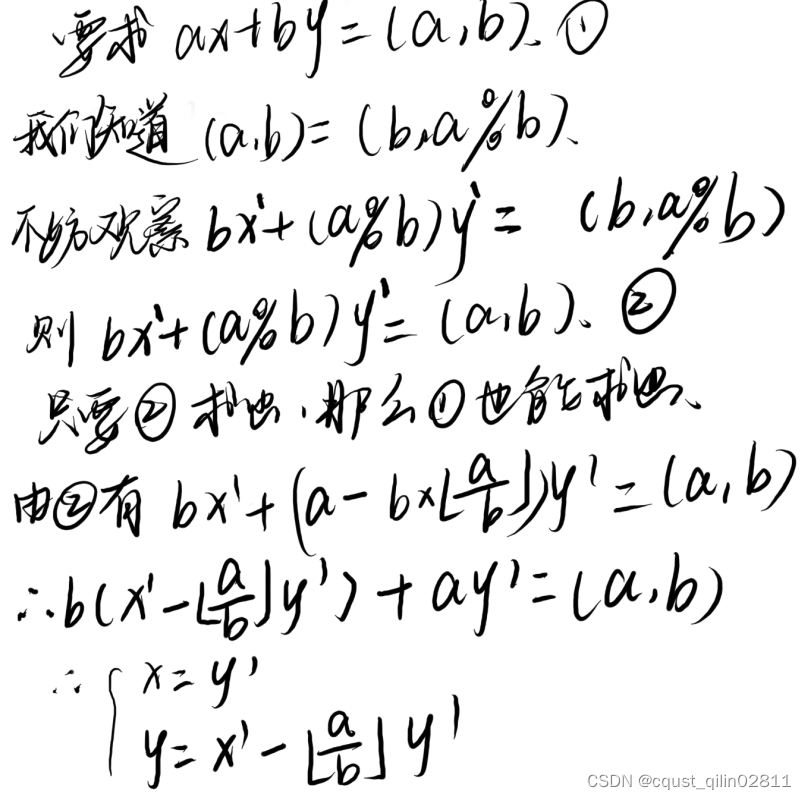 要求 ax+by=(a,b). ①
我们知道 (a,b)=(b,a%b).
不妨观察 bx'+(a%b)y'= (b,a%b)
则 bx'+(a%b)y'=(a,b). ②
只要②求出,那么①也能求出.
由②有 bx'+(a-b×⌊a/b⌋)y'=(a,b)
∴b(x'-⌊a/b⌋y')+ay'=(a,b)
∴{x=y'
y=x'-⌊a/b⌋y'
CSDN @cqust_qilin02811